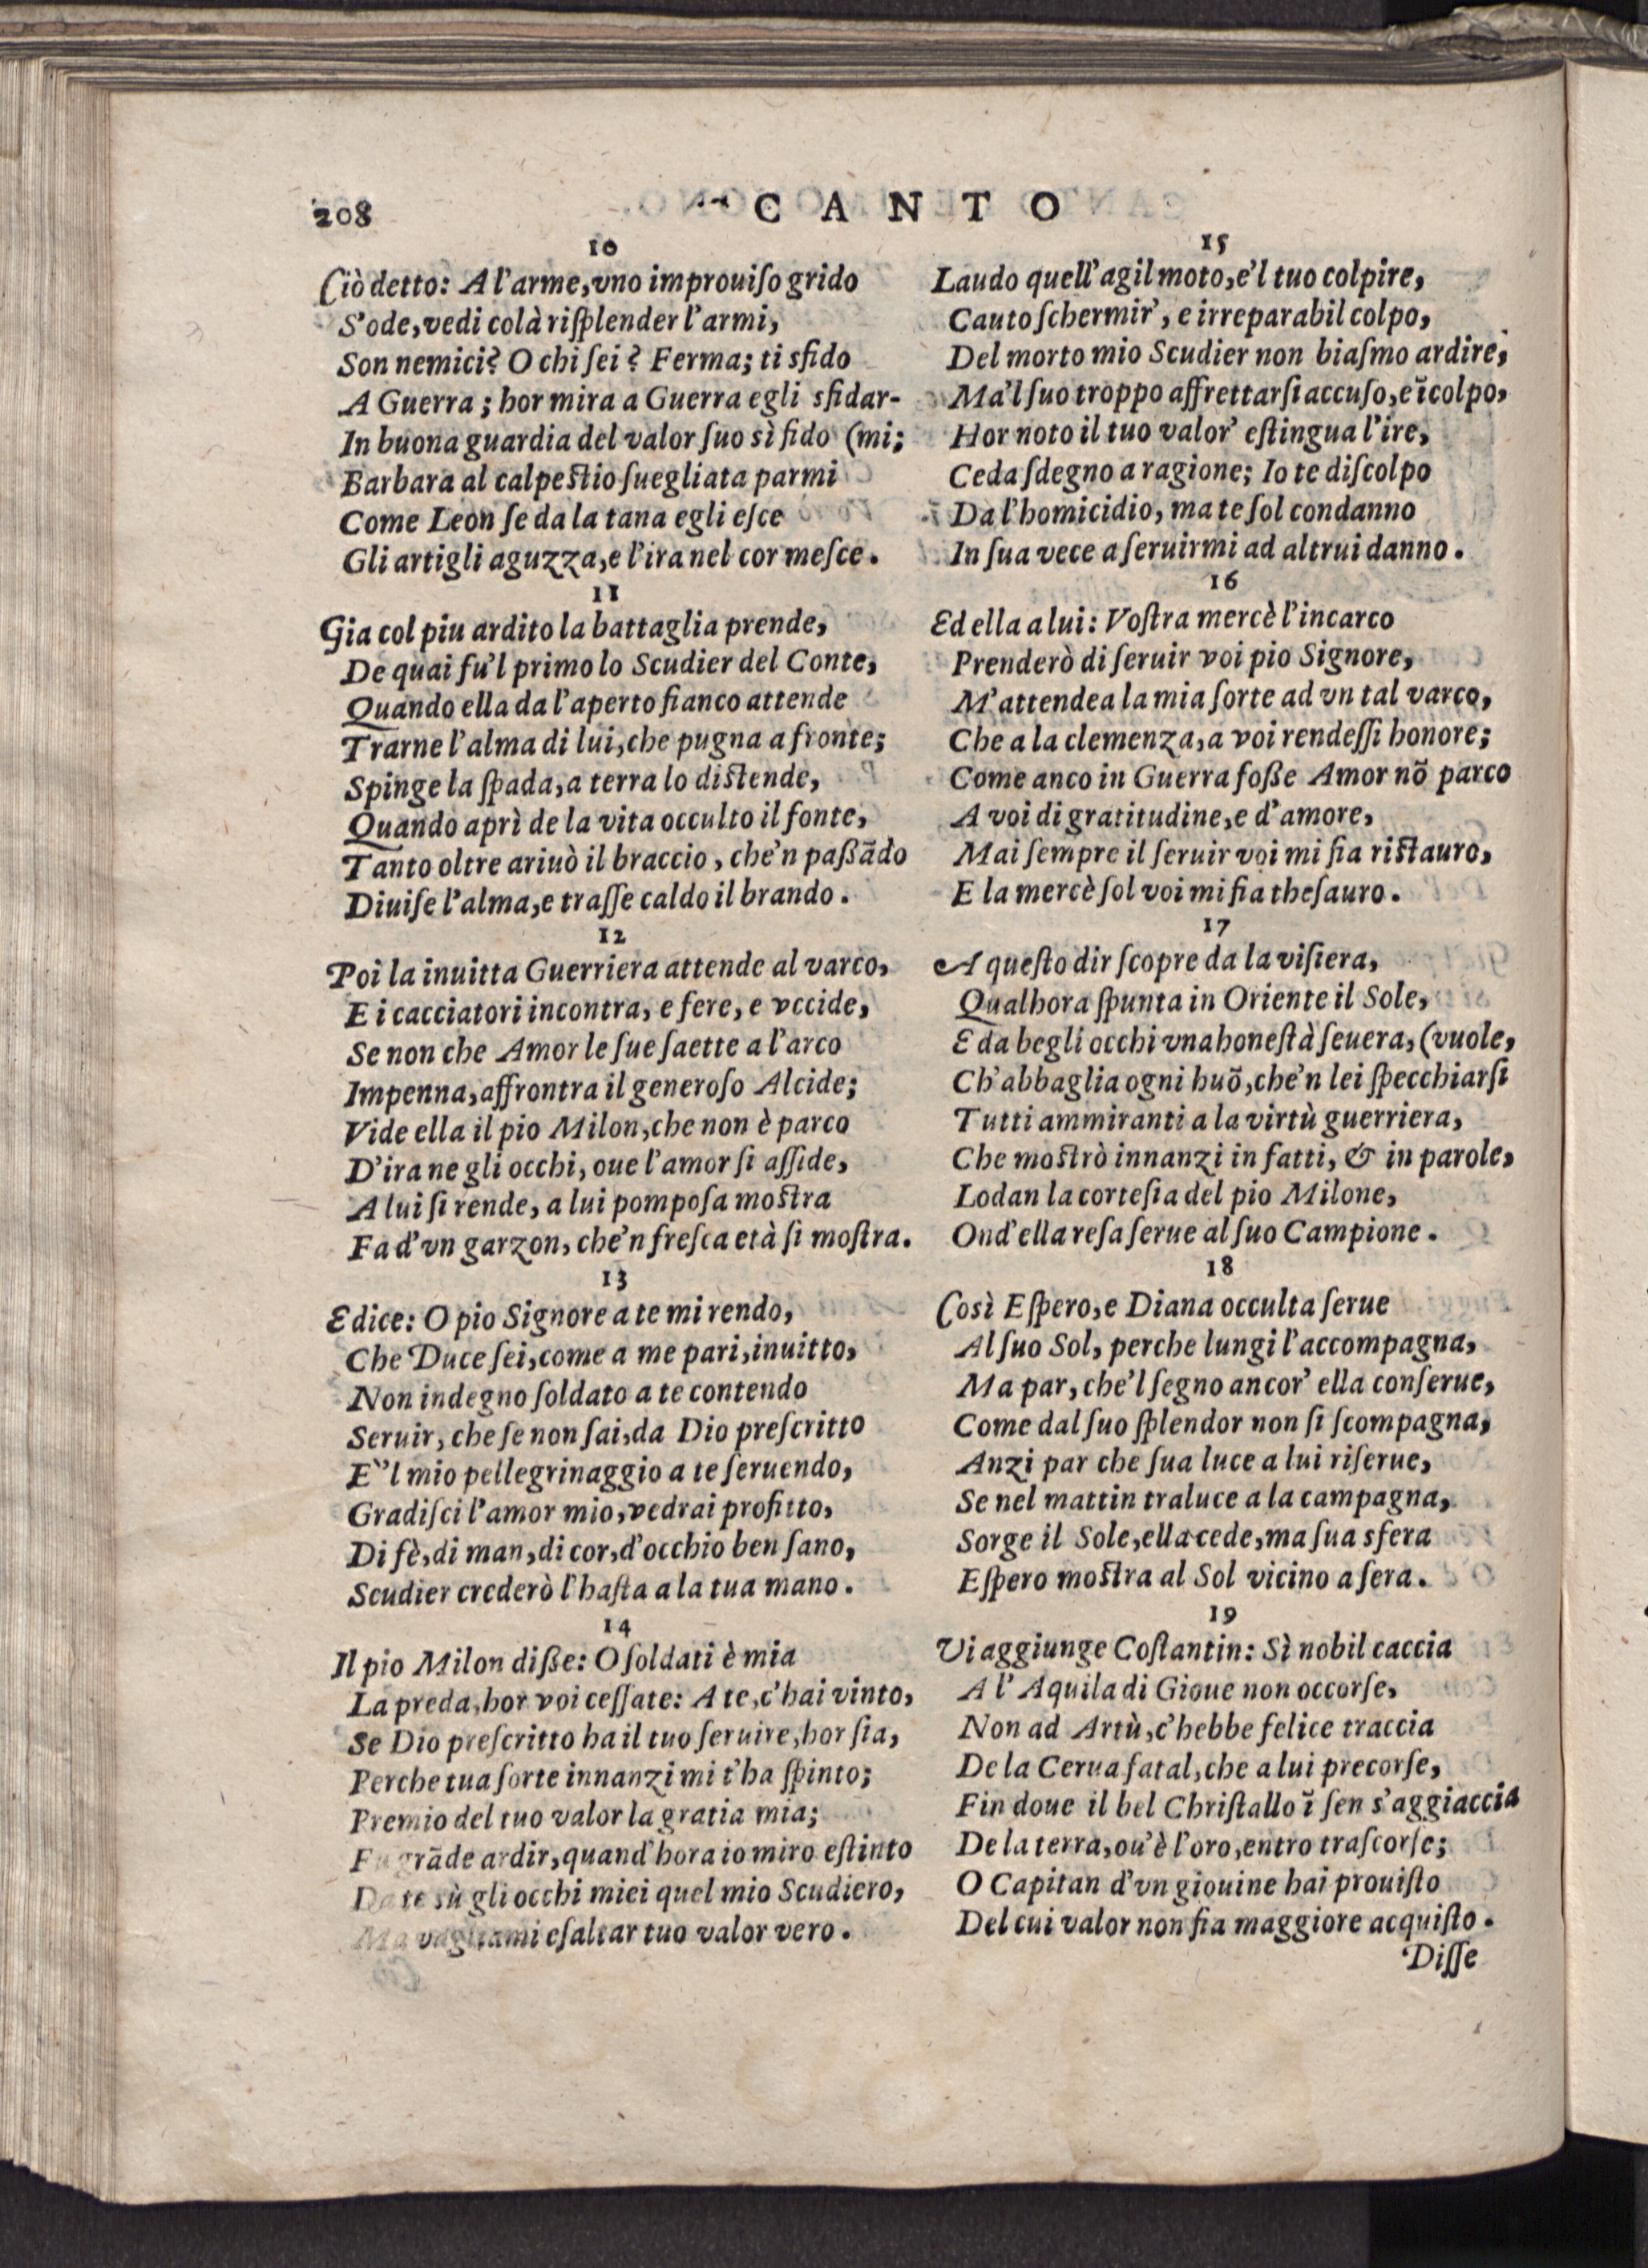 208
CANTO
10
Ciò detto: A l'arme, vno improuiſo grido
S'ode, vedi colà riſplender l'armi,
Son nemici? O chi ſei? Ferma; ti sfido
A Guerra; hor mira a Guerra egli sfidar-
In buona guardia del valor ſuo sì fido (mi;
Barbara al calpeſtio ſuegliata parmi
Come Leon ſe da la tana egli eſce
Gli artigli aguzza, e l'ira nel cor meſce.
11
Gia col piu ardito la battaglia prende,
De quai fu'l primo lo Scudier del Conte,
Quando ella da l'aperto fianco attende
Trarne l'alma di lui, che pugna a fronte;
Spinge la ſpada, a terra lo diſtende,
Quando aprì de la vita occulto il fonte,
Tanto oltre ariuò il braccio, che'n paßādo
Diuiſe l'alma, e traſſe caldo il brando.
12
Poi la inuitta Guerriera attende al varco,
E i cacciatori incontra, e fere, e vccide,
Se non che Amor le ſue ſaette a l'arco
Impenna, affrontra il generoſo Alcide;
Vide ella il pio Milon, che non è parco
D'ira ne gli occhi, oue l'amor ſi aſſide,
A lui ſi rende, a lui pompoſa moſtra
Fa d'vn garzon, che'n freſca età ſi moſtra.
13
E dice: O pio Signore a te mi rendo,
Che Duce ſei, come a me pari, inuitto,
Non indegno ſoldato a te contendo
Seruir, che ſe non ſai, da Dio preſcritto
E''l mio pellegrinaggio a te ſeruendo,
Gradiſci l'amor mio, vedrai profitto,
Di fè, di man, di cor, d'occhio ben ſano,
Scudier crederò l'haſta a la tua mano.
14
Il pio Milon diße: O ſoldati è mia
La preda, hor voi ceſſate: A te, c'hai vinto,
Se Dio preſcritto ha il tuo ſeruire, hor ſia,
Perche tua ſorte innanzi mi t'ha ſpinto;
Premio del tuo valor la gratia mia;
Fu grāde ardir, quand'hora io miro eſtinto
Da te sù gli occhi miei quel mio Scudiero,
Ma vagliami eſaltar tuo valor vero.
15
Laudo quell'agil moto, e'l tuo colpire,
Cauto ſchermir', e irreparabil colpo,
Del morto mio Scudier non biaſmo ardire,
Ma'l ſuo troppo affrettarſi accuſo, e īcolpo,
Hor noto il tuo valor' eſtingua l'ire,
Ceda ſdegno a ragione; Io te diſcolpo
Da l'homicidio, ma te ſol condanno
In ſua vece a ſeruirmi ad altrui danno.
16
Ed ella a lui: Voſtra mercè l'incarco
Prenderò di ſeruir voi pio Signore,
M'attendea la mia ſorte ad vn tal varco,
Che a la clemenza, a voi rendeſſi honore;
Come anco in Guerra foße Amor nõ parco
A voi di gratitudine, e d'amore,
Mai ſempre il ſeruir voi mi fia riſtauro,
E la mercè ſol voi mi fia theſauro.
17
A queſto dir ſcopre da la viſiera,
Qualhora ſpunta in Oriente il Sole,
E da begli occhi vna honeſtà ſeuera, (vuole,
Ch'abbaglia ogni huõ, che'n lei ſpecchiarſi
Tutti ammiranti a la virtù guerriera,
Che moſtrò innanzi in fatti, & in parole,
Lodan la corteſia del pio Milone,
Ond'ella reſa ſerue al ſuo Campione.
18
Così Eſpero, e Diana occulta ſerue
Al ſuo Sol, perche lungi l'accompagna,
Ma par, che'l ſegno ancor' ella conſerue,
Come dal ſuo ſplendor non ſi ſcompagna,
Anzi par che ſua luce a lui riſerue,
Se nel mattin traluce a la campagna,
Sorge il Sole, ella cede, ma ſua sfera
Eſpero moſtra al Sol vicino a ſera.
19
Vi aggiunge Coſtantin: Sì nobil caccia
A l'Aquila di Gioue non occorſe,
Non ad Artù, c'hebbe felice traccia
De la Cerua fatal, che a lui precorſe,
Fin doue il bel Chriſtallo ī ſen s'aggiaccia
De la terra, ou'è l'oro, entro traſcorſe;
O Capitan d'vn giouine hai prouiſto
Del cui valor non fia maggiore acquiſto.
Diſſe